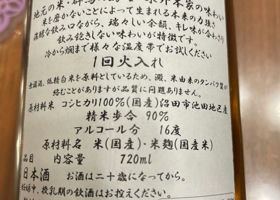 米を磨かないことによって生まれる本来の力強さ
濃醇な飲み口ながら、瑞々しい余韻、キレ味が合わさり
飲み飽きしない味わいが特徴です。
冷から燗まで様々な温度帯でお試しください
1回火入れ
無濾過、低精白米を原料としているため、澱、米由来のタンパク質が
絡むことがありますが品質に問題ありません。
原材料米 コシヒカリ100%(国産)沼田市池田地区産
精米歩合 90%
アルコール分 16度
原材料名 米(国産)・米麹(国産米)
品目 内容量 720ml
日本酒 お酒は二十歳になってから。
妊娠中、授乳期の飲酒はお控えください。